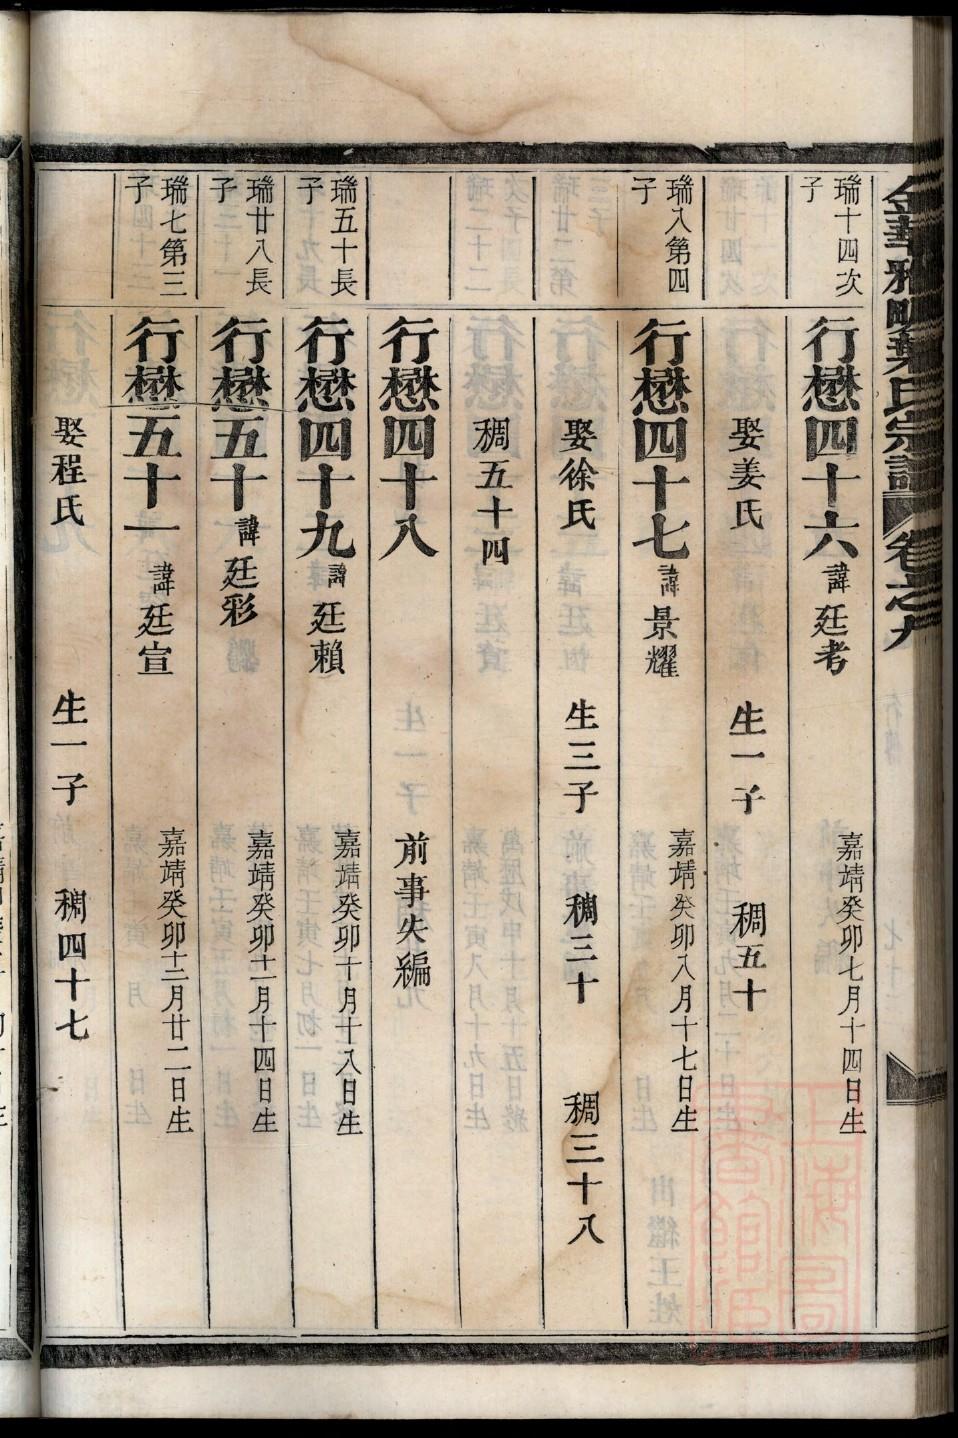 金華雅畈葉氏宗譜 卷之九
瑞十四次子
行懋四十六 諱廷考 嘉靖癸卯七月十四日生
娶姜氏 生一子 稠五十
瑞八第四子
行懋四十七 諱景耀 嘉靖癸卯八月十七日生
娶徐氏 生三子 稠三十 稠三十八
稠五十四
行懋四十八 前事失編
瑞五十長子
行懋四十九 諱廷賴 嘉靖癸卯十月十八日生
瑞廿八長子
行懋五十 諱廷彩 嘉靖癸卯十二月十四日生
瑞七第三子
行懋五十一 諱廷宣 嘉靖癸卯十二月廿二日生
娶程氏 生一子 稠四十七